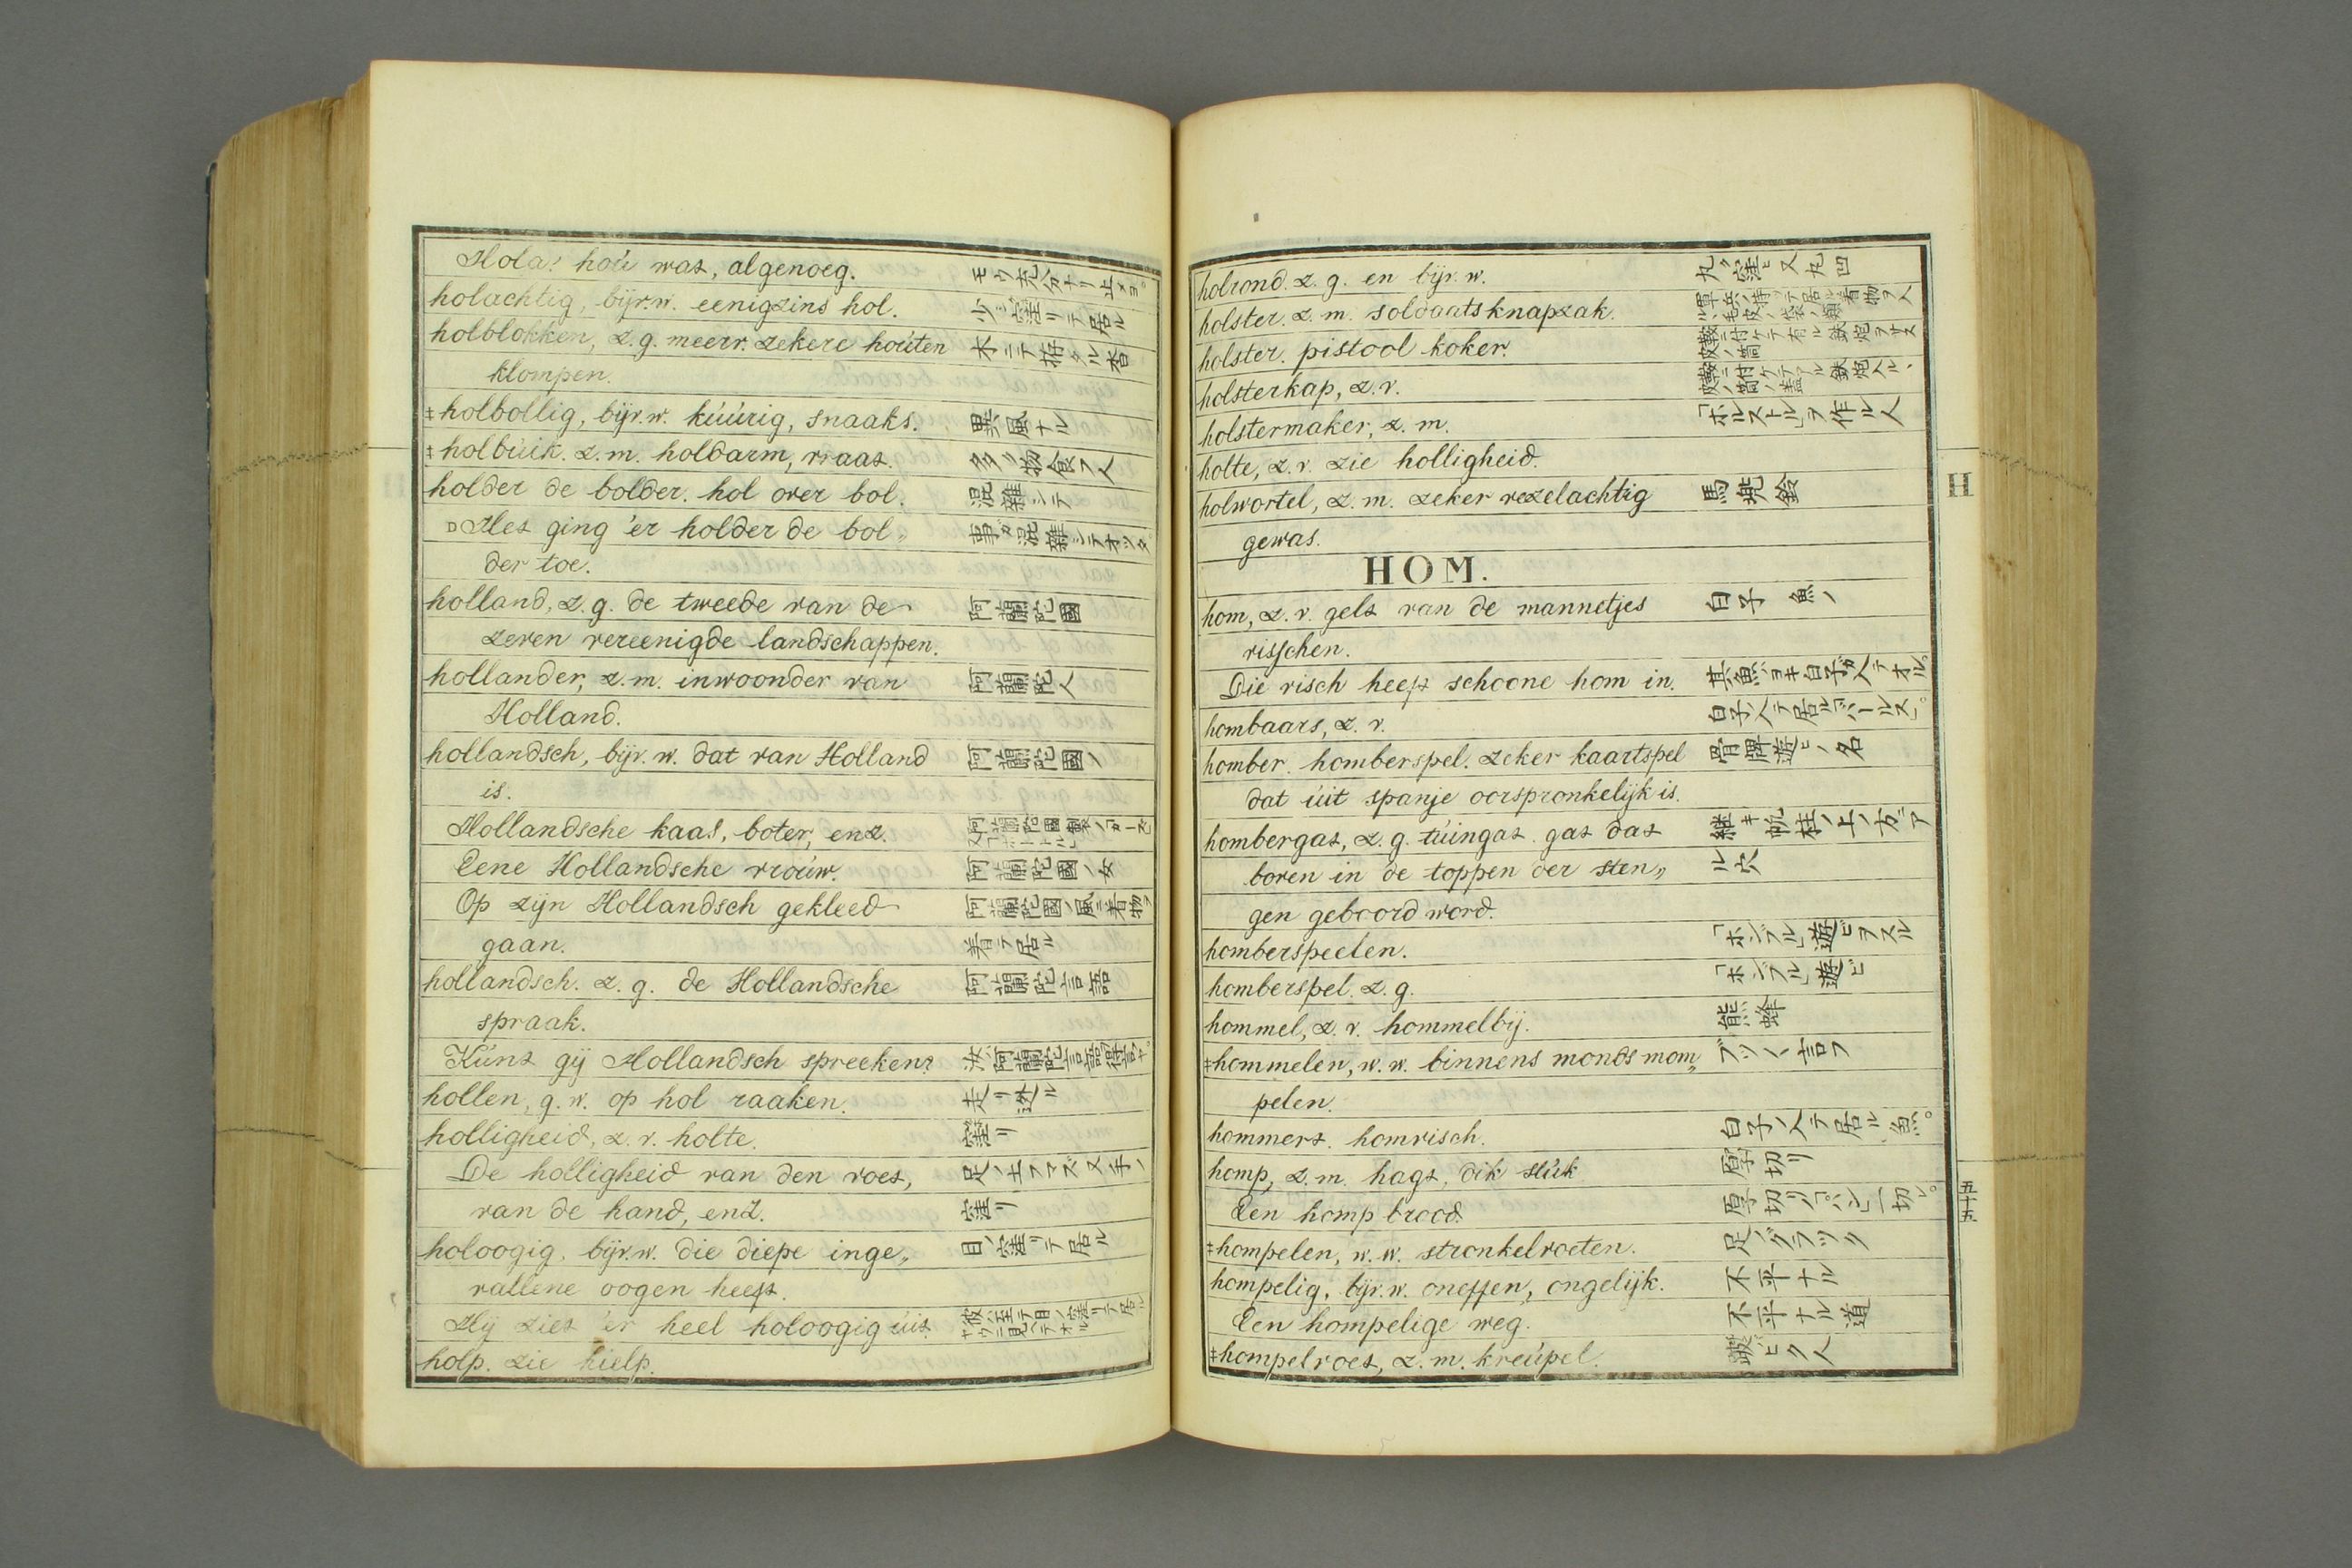 Hola! hoú wat, al genoeg. モウ充分ナリ止メヨ。
holachtig, bijv. w. eenigzins hol. 少シ窪リテ居ル
holblokken, z. g. meerv. zekere hoúten 木ニテ拵タル沓
klompen.
‡holbollig, bijv. w. kúúrig, snaaks. 異風ナル
‡holbúik. z. m. holdarm, vraat. 多ク物食フ人
holder de bolder. hol over bol. 混雜シテ
Het ging 'er holder de bol„ 事ガ混雜シテオツタ。
der toe.
holland, z. g. de tweede van de 阿蘭陀國
zeven vereenigde landschappen.
hollander, z. m. inwoonder van 阿蘭陀人
Holland.
hollandsch, bijv. w. dat van Holland 阿蘭陀國ノ
is.
Hollandsche kaas, boter, enz. 阿蘭陀國製ノ
Eene Hollandsche vroúw. 阿蘭陀國ノ女
Op zijn Hollandsch gekleed 阿蘭陀國ノ風ニ着物ヲ
gaan. 着テ居ル
hollandsch. z. g. de Hollandsche 阿蘭陀言語
spraak.
Kúnt gij Hollandsch spreeken? 汝阿蘭陀言語
hollen, g. w. op hol raaken. 走リ迯ル
holligheid, z. v. holte. 窪リ
De holligheid van den voet, 足ノ土フマズ又手ノ
van de hand, enz. 窪リ
holoogig, bijv. w. die diepe inge„ 目ノ窪リテ居ル
vallene oogen heeft.
Hij ziet 'er heel holoogig úit. 彼ハ至テ目ノ窪リテ居ルヤウニ見ヘテオル
holp. zie hielp.
holrond. z. g. en bijv. w. 丸ク窪ヒ又丸凹
holster. z. m. soldaats knapzak. 軍兵ノ持ツテ居ル着物ヲ入ルヽ毛皮ノ袋ノ類
holster. pistool koker. 鞍ニ付ケテ有ル鉄炮ヲサス皮ノ筒
holsterkap, z. v. 鞍ニ付ケテアル鉄炮入ルヽ皮ノ筒ノ蓋
holstermaker, z. m. 「ホルストル」ヲ作ル人
holte, z. v. zie holligheid.
holwortel, z. m. zeker vezelachtig 馬兜鈴
gewas.
HOM.
hom, z. v. gelt van de mannetjes 白子 魚ノ
visschen.
Die visch heeft schoone hom in. 其魚ハヨキ白子ガ入テオル。
hombaars, z. v. 白子ノ入テ居ル「バールス」。
homber. homberspel. zeker kaartspel 骨牌遊ヒノ名
dat úit spanje oorspronkelijk is.
hombergat, z. g. túingat. gat dat 継キ帆柱ノ上ノ方ニア
boven in de toppen der sten„ ル穴
gen geboord word.
homberspeelen. 「ホンブル」遊ビヲスル
homberspel. z. g. 「ホンブル」遊ビ
hommel, z. v. hommelbij. 熊蜂
‡hommelen, w. w. binnens monds mom„ ブツ〱言フ
pelen.
hommert. homvisch. 白子ノ入テ居ル魚。
homp, z. m. hagt, dik stúk 厚切リ
Een homp brood. 厚切リノ「パン」一切レ。
‡hompelen, w. w. stronkelvoeten. 足ノグラツク
hompelig, bijv. w. oneffen, ongelijk. 不平ナル
Een hompelige weg. 不平ナル道
‡hompelvoet, z. m. kreúpel. 跛ヒク人
H
五十五